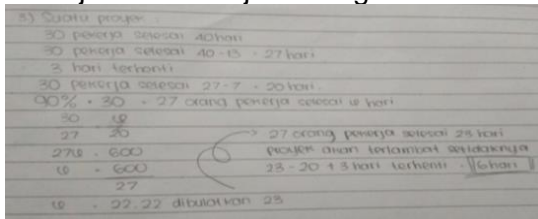 3) Suatu proyek :
30 pekerja selesai 40 hari
30 pekerja selesai 40 - 13 = 27 hari
3 hari terhenti
30 pekerja selesai 27 - 7 = 20 hari.
90% • 30 = 27 orang pekerja selesai φ hari
30 φ
27 20
27φ = 600
φ = 600
27
φ = 22,22 dibulatkan 23
→ 27 orang pekerja selesai 23 hari
proyek akan terlambat setidaknya
23 - 20 + 3 hari terhenti = 6 hari